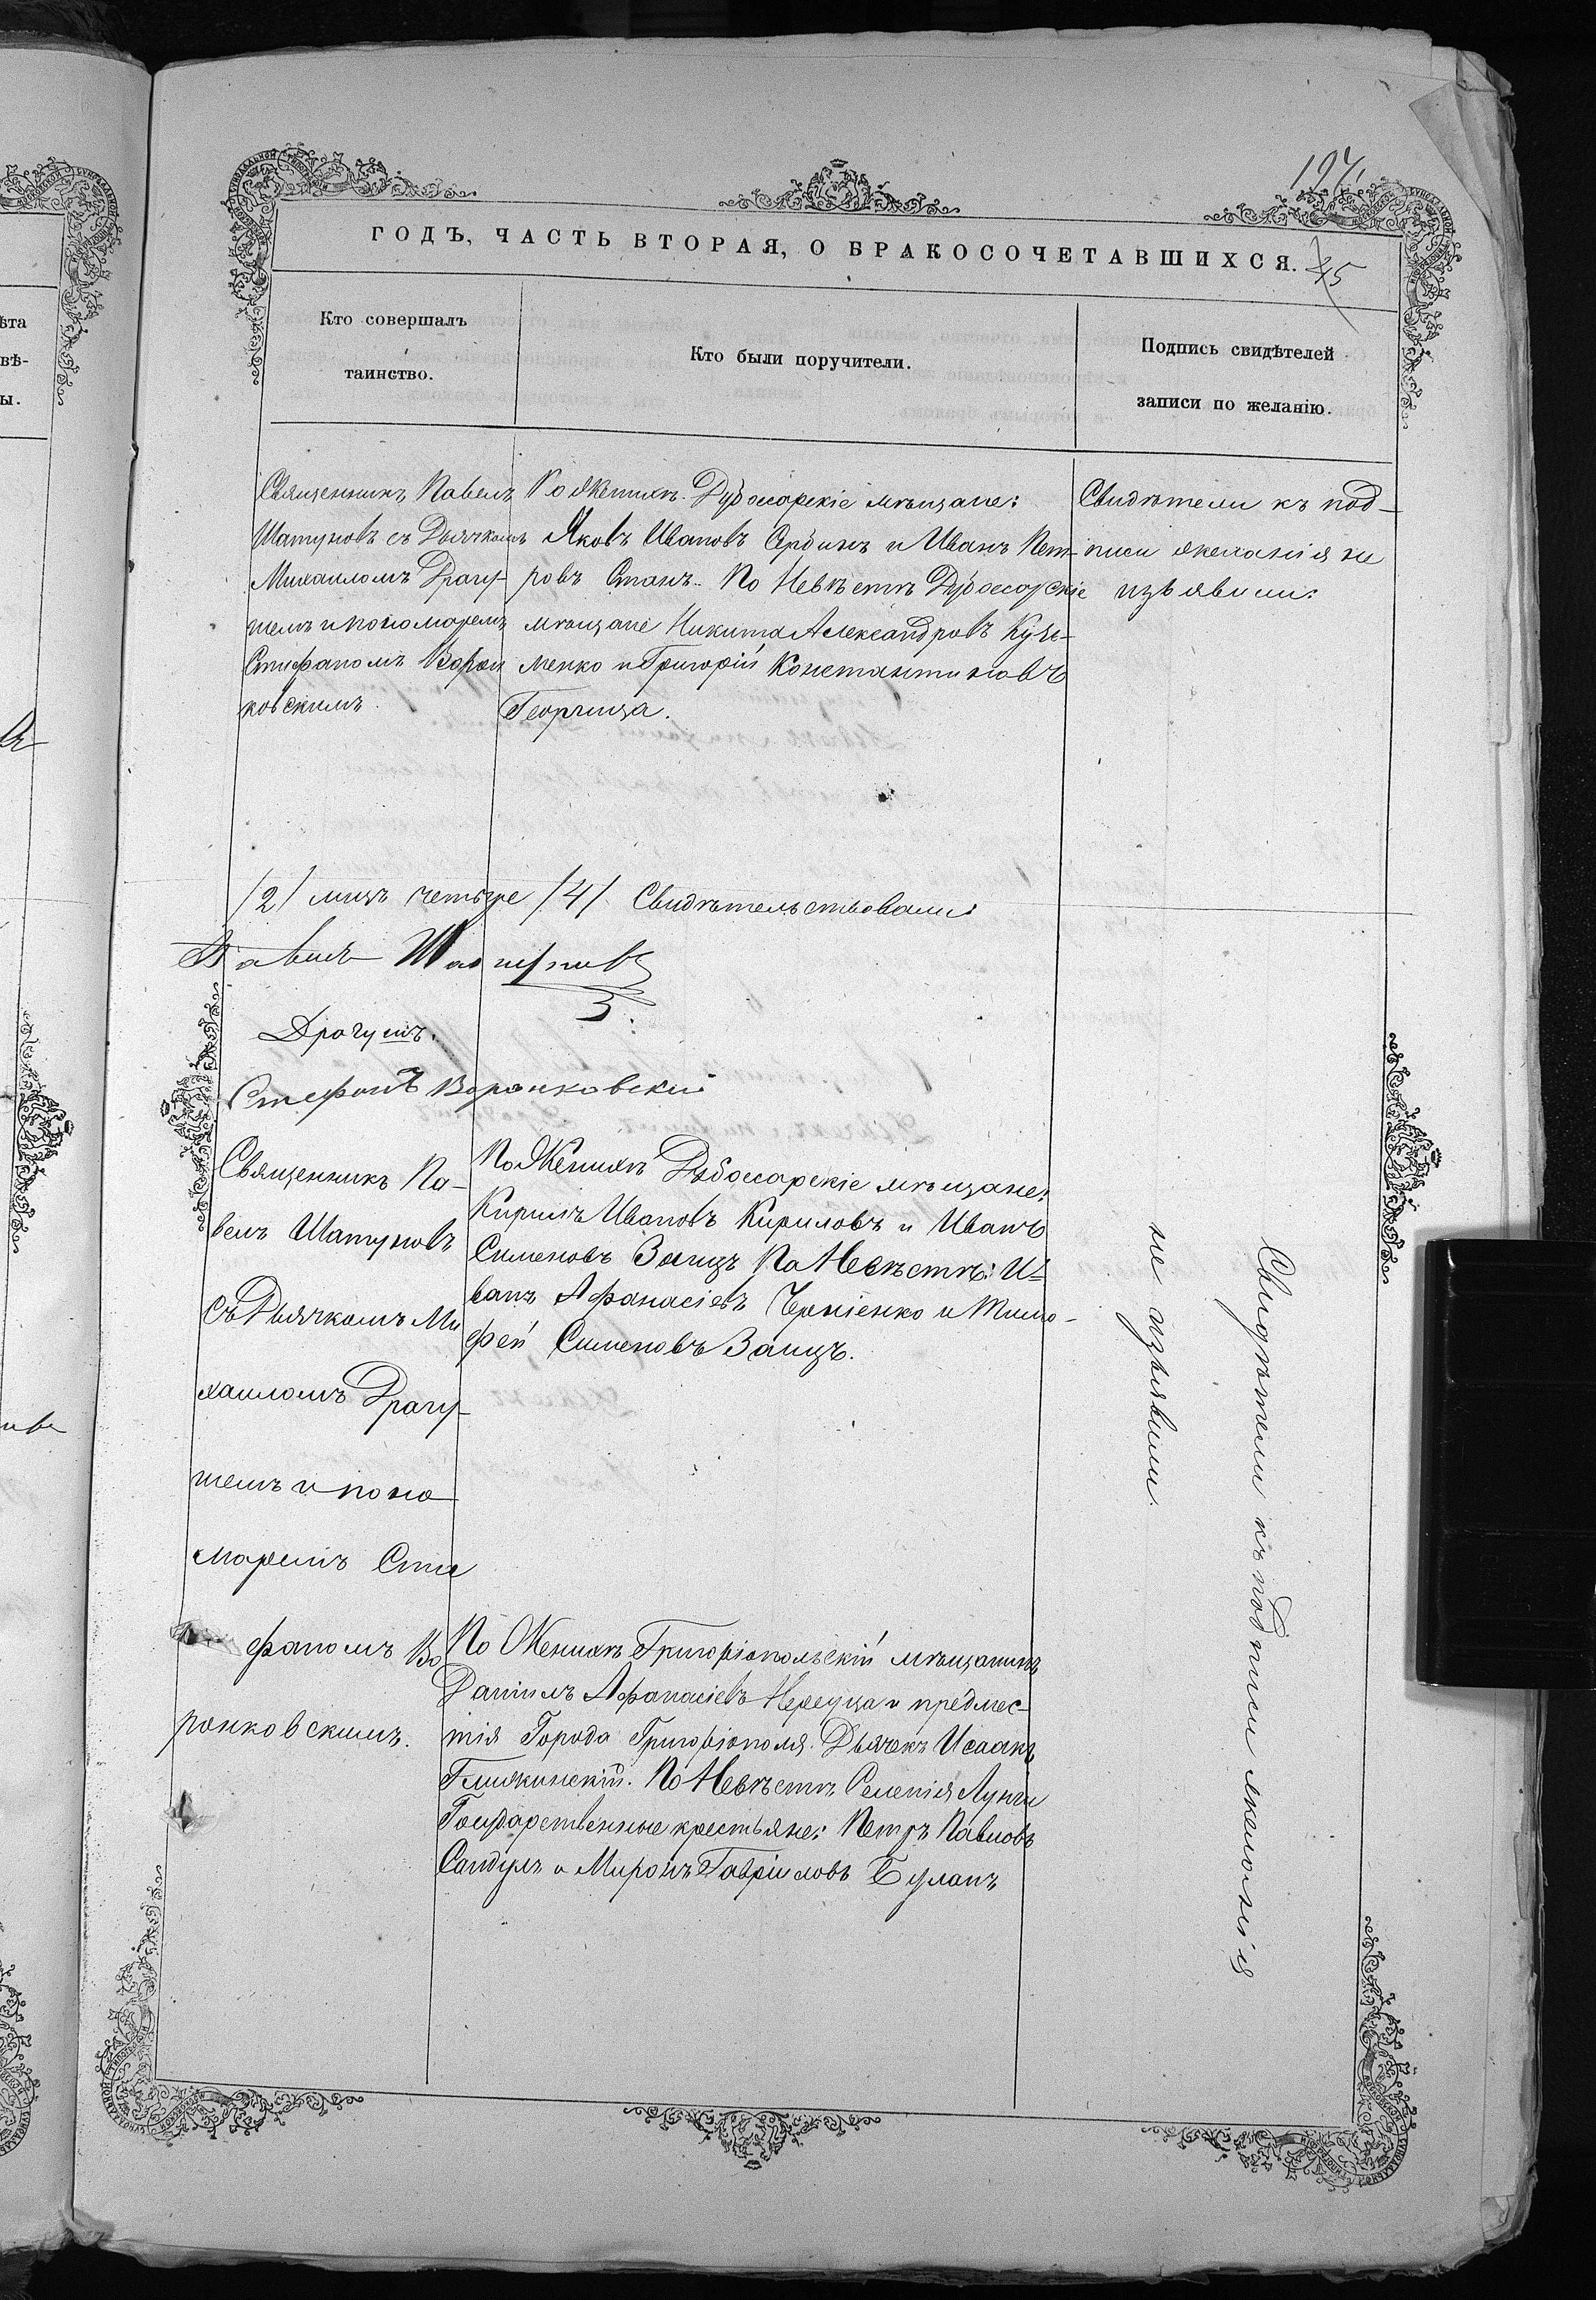 197.
ГОДЪ, ЧАСТЬ ВТОРАЯ, О БРАКОСОЧЕТАВШИХСЯ.
45
Кто совершалъ
таинство.
Кто были поручители.
Подпись свидѣтелей
записи по желанію.
Священникъ Павелъ
Шатуновъ съ Дьячкомъ
Михаиломъ Драгу-
шемъ и пономаремъ
Стефаномъ Ворон
ковскимъ.
По Женихѣ Дубоссарскіе мѣщане:
Яковъ Ивановъ Сербинъ и Иванъ Пет-
ровъ Станъ. По Невѣстѣ Дубоссарскіе
мѣщане Никита Александровъ Кузь-
менко и Григорій Константиновъ
Георгица.
Свидѣтели къ под-
писи желанія не
изъявили.
/2/ лицъ четыре /4/ Свидѣтельствовали:
Павелъ Шатуновъ
Драгушъ.
Стефанъ Воронковскій
Священникъ Па-
велъ Шатуновъ
съ Дьячкомъ Ми
хаиломъ Драгу-
шемъ и поно
маремъ Сте
фаномъ Во
ронковскимъ.
По Женихѣ Дубоссарскіе мѣщане:
Кирилъ Ивановъ Кириловъ и Иванъ
Сименовъ Заицъ По Невѣстѣ: И-
ванъ Афанасіевъ Черніенко и Тимо-
фей Сименовъ Заицъ.
По Женихѣ Григоріопольскій мѣщанинъ
Даніилъ Афанасіевъ и предмес-
тія Города Григоріополя Дьячекъ Исаакъ
По Невѣстѣ Селенія Лунги
Государственные крестьяне: Петръ Павловъ
Сандулъ и Миронъ Гавріиловъ Буланъ
Свидѣтели къ подписи желанія
не изъявили.